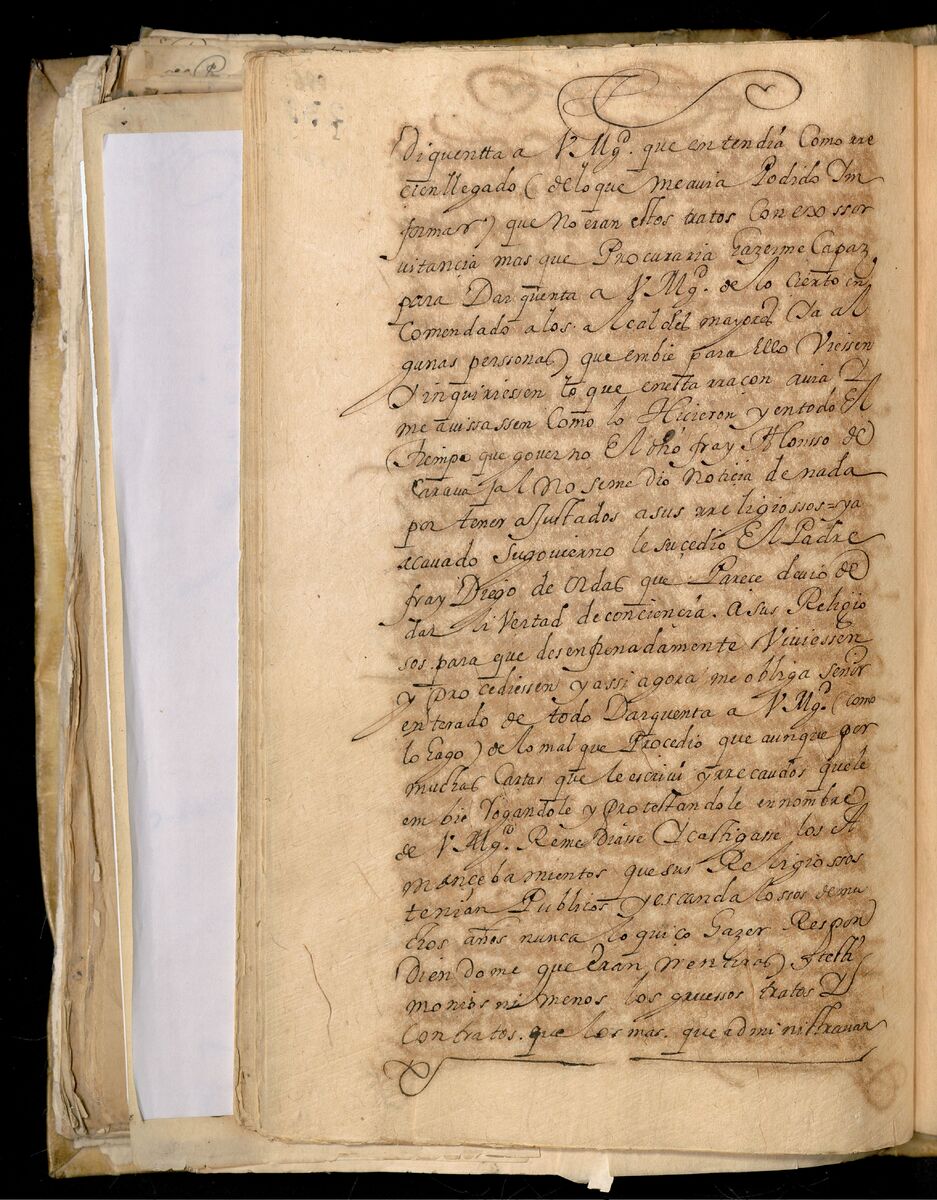 di quentta a V Mgd. que entendia Como rre
cien llegado (de lo que me avia Podido Im
formar) que No eran estos tratos Con exssor
vitancia mas que Procuraria hazerme Capaz
para Dar quenta a V Mgd. de lo cierto en
Comendado a los alcaldes mayores (Ya al
gunas personas) que embie para ello Viessen
Y inquiriessen lo que en esta rraçon avia Y
me avissassen Como lo Hicieron y en todo El
Tiempo que governo El dho fray Alonsso de
Carava jal No se me dio Noticia de nada
por tener ajustados a sus rreligiossos = ya
acavado su govierno le sucedio El Padre
fray Diego de Ordas que Parece devio de
dar liVertad de conciencia. A sus Religio
sos para que desenfrenadamente Viviessen
y procediessen y assi agora me obliga señor
enterado de todo Dar quenta a V Mgd. (como
lo hago) de lo mal que Procedio que aunque por
muchas Cartas que le escrivi y rrecaudos que le
embie Rogandole y protestandole en nombre
de V Mgd. Remediasse Y castigasse los A
mancebamientos que sus Religiossos
tenian Publicos y escandalossos de mu
chos años nunca lo quiço hazer Respon
diendome que Eran mentiras Y testi
monios ni menos los gruessos tratos Y
Contratos. que los mas. que administravan